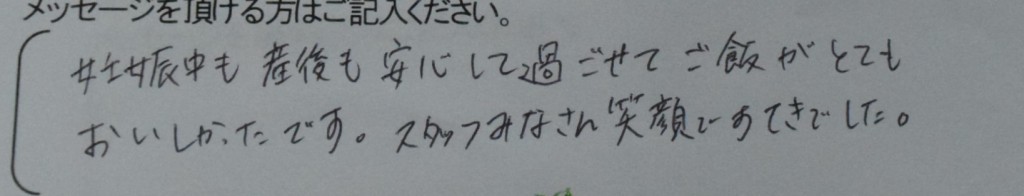 メッセージを頂ける方はご記入ください。
妊娠中も産後も安心して過ごせてご飯がとても
おいしかったです。スタッフみなさん笑顔ですてきでした。